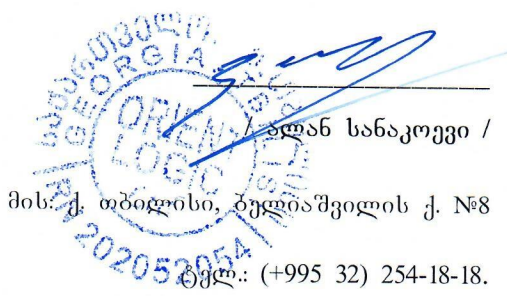 საქართველო
GEORGIA
ORIENT
LOGIC
202052954
/ ალან სანაკოევი /
მის: ქ. თბილისი, ბულიაშვილის ქ. №8
ტელ.: (+995 32) 254-18-18.